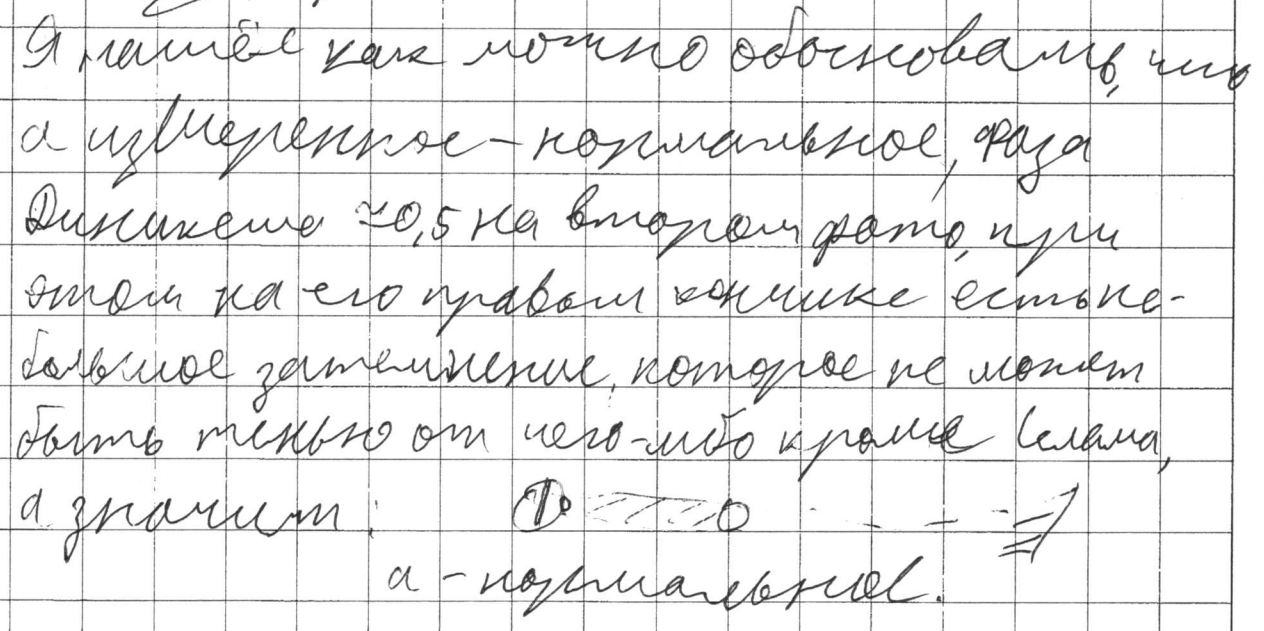 Я нашёл как можно обосновать, что
а измеренное - нормальное, фаза
Динкенеша ≈0,5 на втором фото, при
этом на его правом кончике есть не-
большое затемнение, которое не может
быть тенью от чего-либо кроме Селама,
а значит:
а - нормальное.